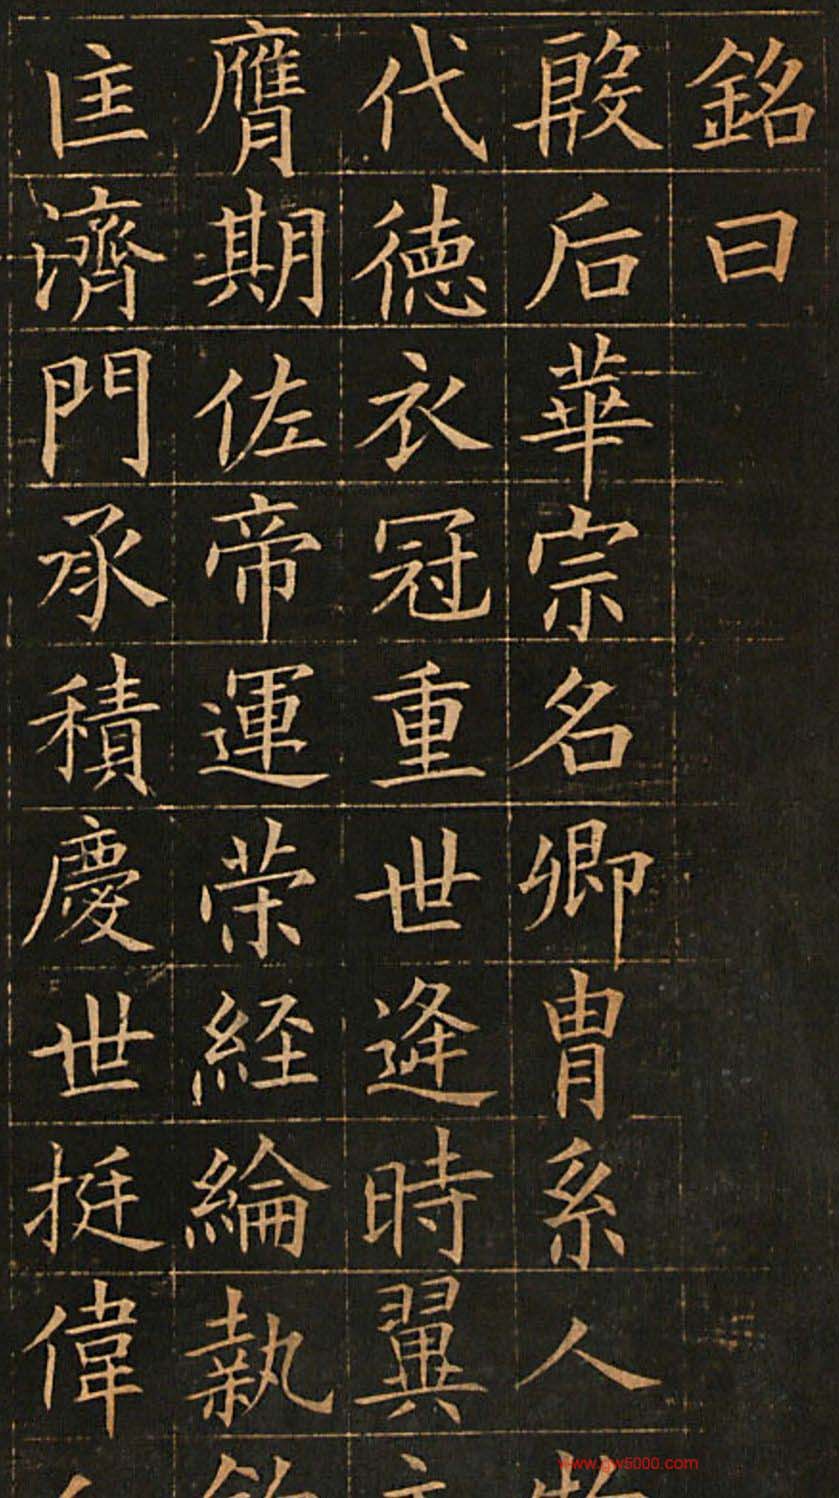 銘曰
殷后華宗名卿冑系人
代德衣冠重世逢時翼
膺期佐帝運榮經綸執
匡濟門承積慶世挺偉
www.gw5000.com